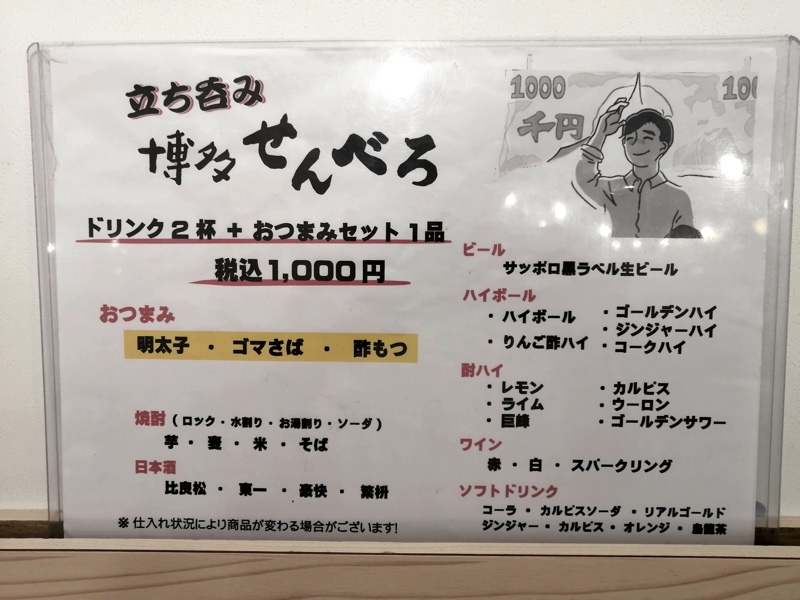 立ち呑み
博多 せんべろ
1000
100
千円
ドリンク2杯 + おつまみセット1品
税込1,000円
おつまみ
明太子 ・ ゴマさば ・ 酢もつ
焼酎 ( ロック・水割り・お湯割り・ソーダ )
芋 ・ 麦 ・ 米 ・ そば
日本酒
比良松 ・ 東一 ・ 豪快 ・ 繁枡
※ 仕入れ状況により商品が変わる場合がございます!
ビール
サッポロ黒ラベル生ビール
ハイボール
・ ハイボール
・ りんご酢ハイ
・ ゴールデンハイ
・ ジンジャーハイ
・ コークハイ
酎ハイ
・ レモン
・ ライム
・ 巨峰
・ カルピス
・ ウーロン
・ ゴールデンサワー
ワイン
赤 ・ 白 ・ スパークリング
ソフトドリンク
コーラ ・ カルピスソーダ ・ リアルゴールド
ジンジャー ・ カルピス ・ オレンジ ・ 烏龍茶